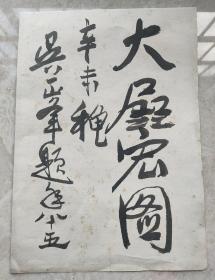 大展宏图
辛未穐
吴正平题年八十五